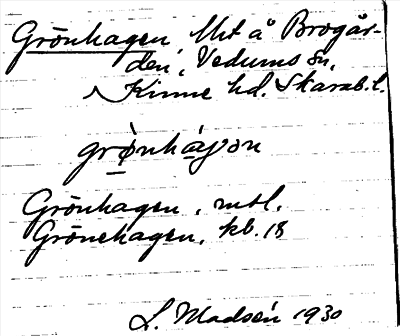 Grönhagen, lht å Brogår-
den, Vedums sn,
Kinne hd. Skarab. l.
grönhágən
Grönhagen, mtl.
Grönehagen, kb. 18
L. Madsén 1930